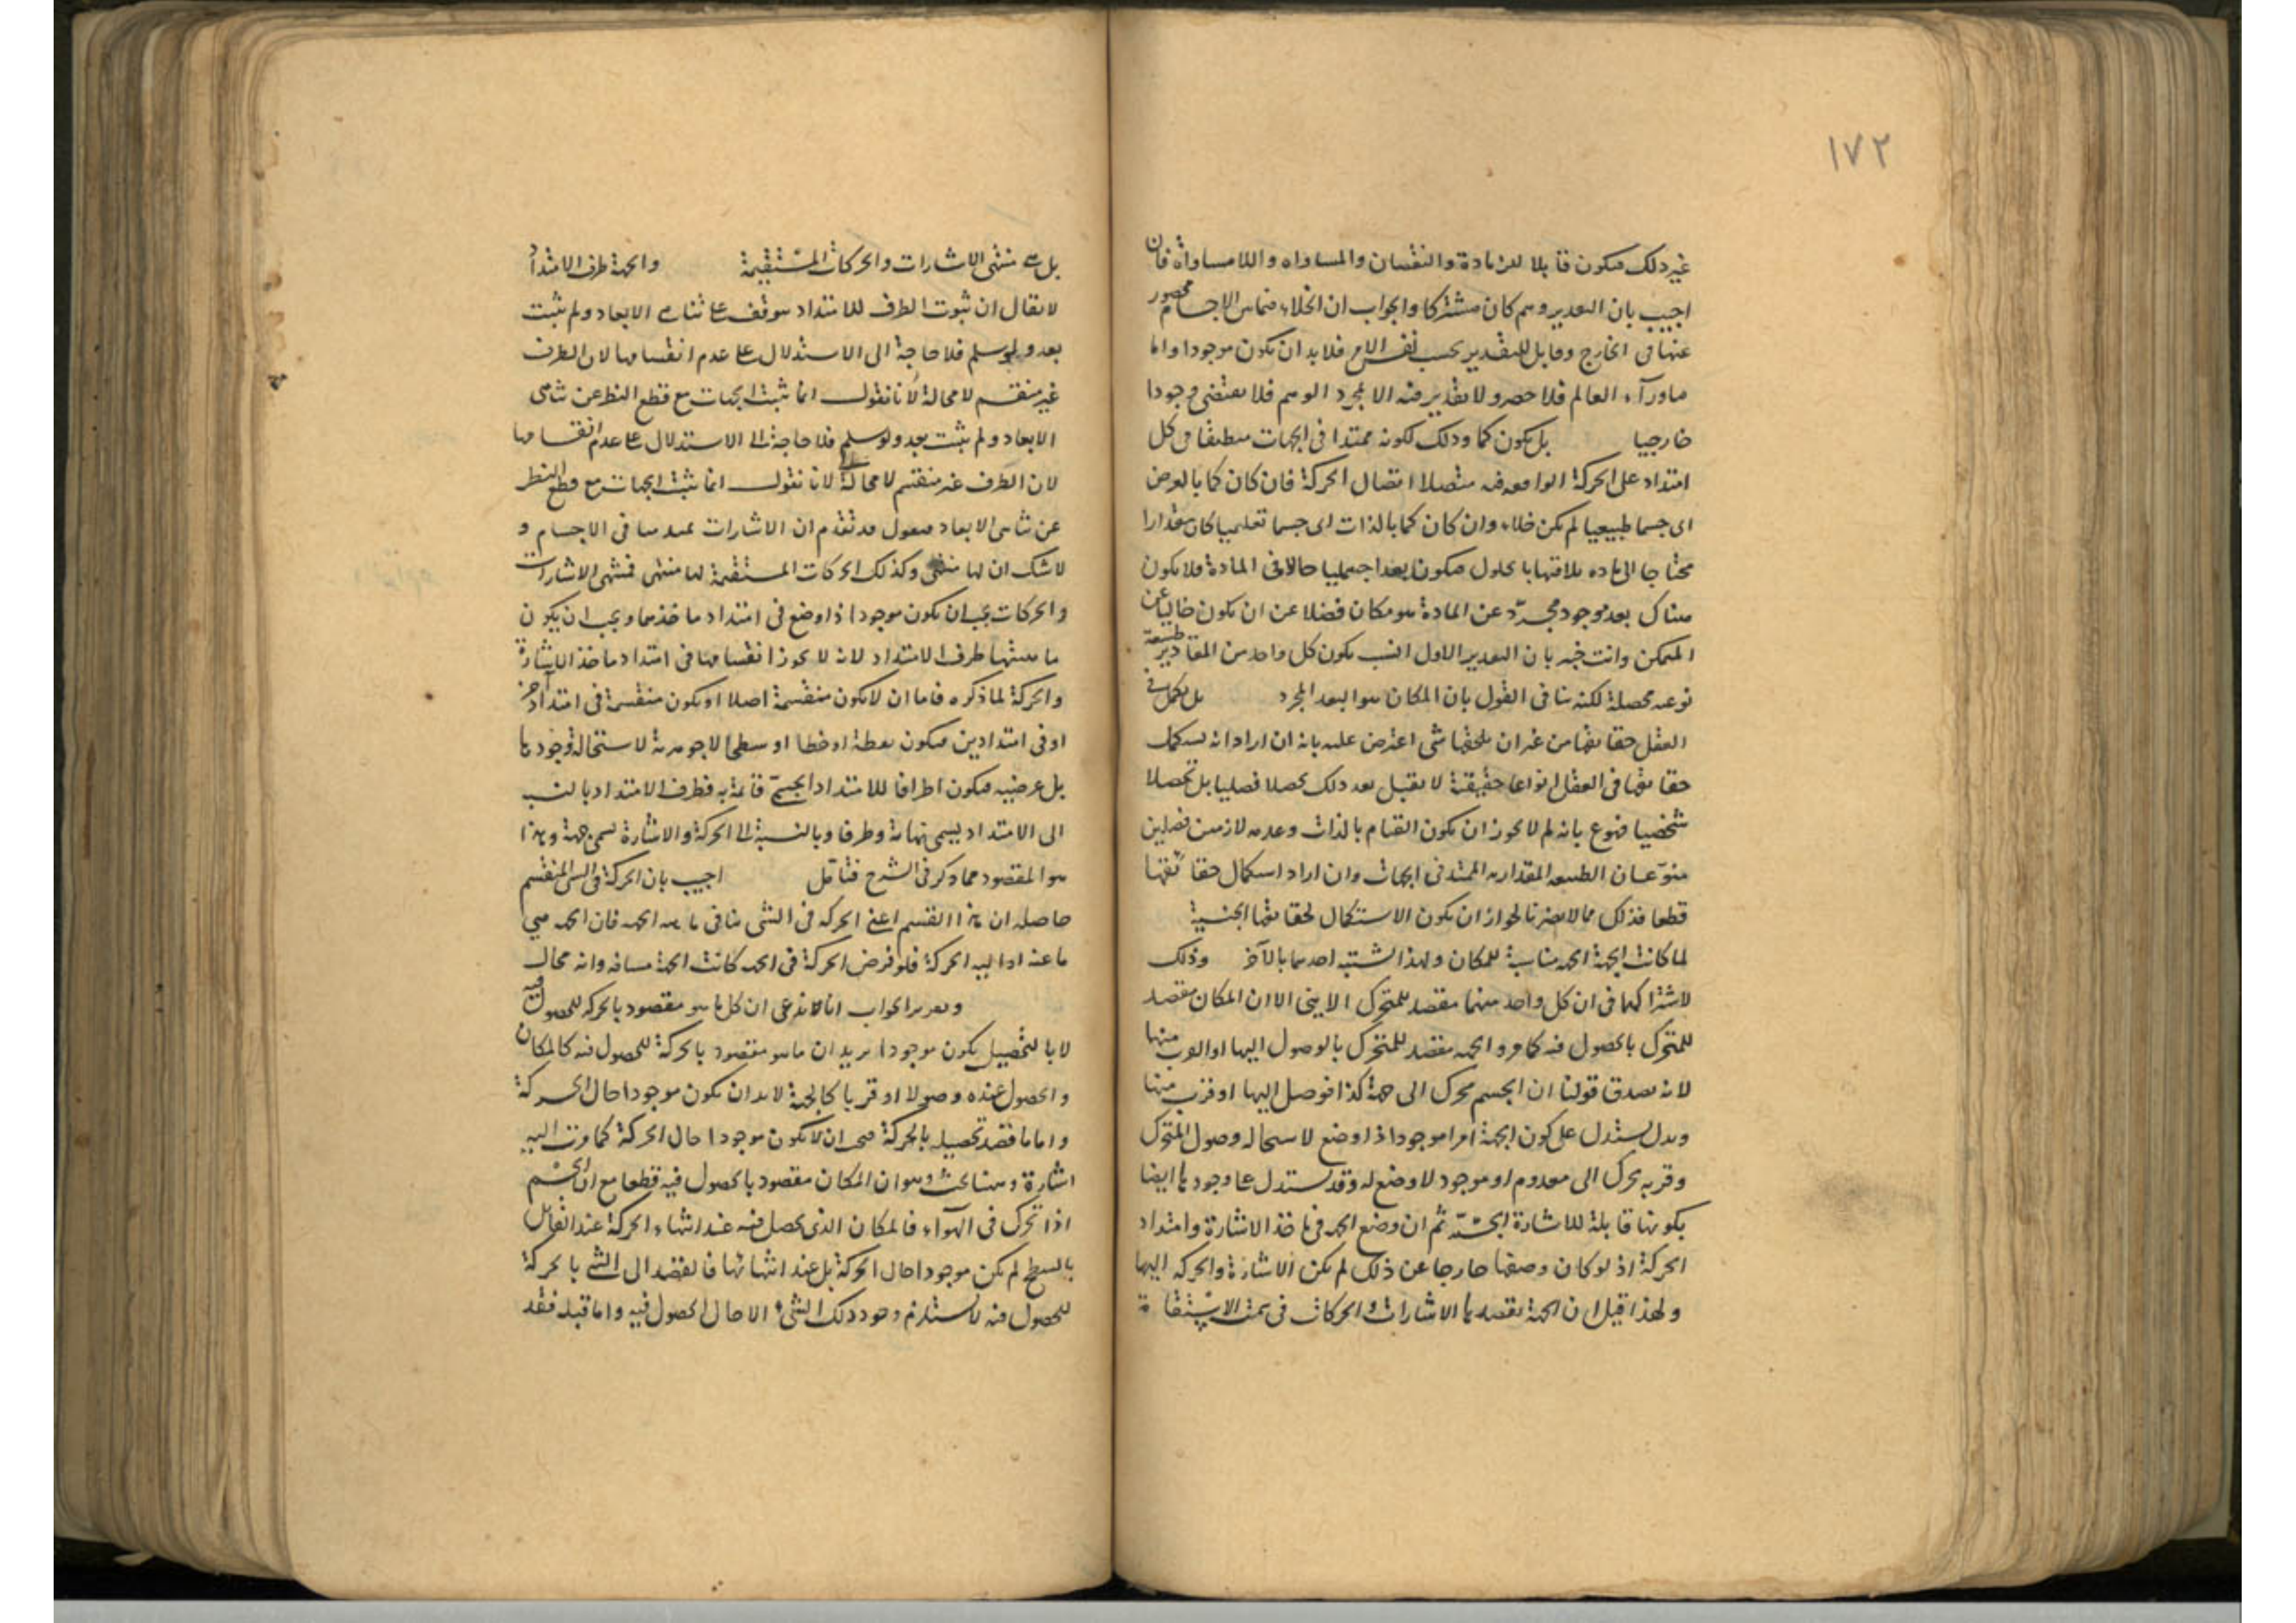 ١٧٢
غير ذلك فيكون قابلا للزيادة والنقصان والمساواه واللامساواة فان
اجيب بان التقدير وهم كان مشتركا والجواب ان الخلاء فيما بين الاجسام محصور
عنها في الخارج وقابل للتقدير بحسب نفس الامر فلا بد ان يكون موجودا واما
ماورآء العالم فلا حصر ولا تقدير فيه الا بمجرد الوهم فلا يقتضي وجودا
خارجيا بل يكون كما وذلك لكونه ممتدا في الجهات منطبقا في كل
امتداد على الحركة الواقعه فيه متصلا اتصال الحركة فان كان كما بالعرض
اى جسما طبيعيا لم يكن خلاء وان كان كما بالذات اى جسما تعليميا كان مقدارا
محتاجا الى ماده يلاقيها بالحلول فيكون بعدا جسميا حالا في المادة فلا يكون
هناك بعد موجود مجرّد عن المادة هو مكان فضلا عن ان يكون خاليا عن
المتمكن وانت خبير بان التقدير الاول انسب يكون كل واحد من المقادير طبيعة
نوعيه محصلة لكنه ينافي القول بان المكان هو البعد المجرد بل يكمل في
العقل حقائقها من غير ان يلحقها شى اعترض عليه بانه ان اراد انه يستكمل
حقائقها في العقل انواعا حقيقية لا يقبل بعد ذلك تحصلا فصليا بل تحصلا
شخصيا فممنوع بانه لم لا يجوز ان يكون القيام بالذات وعدمه لازمين لفصلين
منوّعان الطبيعه المقداريه الممتد في الجهات وان اراد استكمال حقائقها
قطعا فذلك مما لا يضرنا لجواز ان يكون الاستكمال لحقائقها الجنسية
لما كانت الجهة الجهه مناسبة للمكان ولهذا اشتبه احدهما بالآخر وذلك
لاشتراكهما في ان كل واحد منهما مقصد للمتحرك الاينى الا ان المكان مقصد
للمتحرك بالحصول فيه كما مر والجهه مقصد للمتحرك بالوصول اليها او القرب منها
لانه يصدق قولنا ان الجسم تحرك الى جهة كذا فوصل اليها او قرب منها
وبه يستدل على كون الجهة امرا موجودا ذا وضع لاستحاله وصول المتحرك
وقربه بحركة الى معدوم او موجود لا وضع له وقد يستدل على وجودها ايضا
بكونها قابلة للاشارة الحسّيّة ثم ان وضع الجهه في ماخذ الاشارة وامتداد
الحركة اذ لو كان وضعها خارجا عن ذلك لم يكن الاشارة والحركه اليها
ولهذا قيل ان الجهة يقصدها الاشارات والحركات في سمت الاستقامة
بل هى منتهى الاشارات والحركات المستقيمة والجهة طرف الامتداد
لا يقال ان ثبوت الطرف للامتداد موقف على تناهى الابعاد ولم يثبت
بعد ولو سلم فلا حاجة الى الاستدلال على عدم انقسامها لان الطرف
غير منقسم لا محالة لانا نقول انما يثبت الجهات مع قطع النظر عن تناهى
الابعاد ولم يثبت بعد ولو سلم فلا حاجة الى الاستدلال على عدم انقسامها
لان الطرف غير منقسم لا محالة لانا نقول انما يثبت الجهات مع قطع النظر
عن تناهى الابعاد فنقول قد تقدم ان الاشارات في الاجسام و
لا شك ان لها منتهى وكذلك الحركات المستقيمة لها منتهى فمنتهى الاشارات
والحركات يجب ان يكون موجودا ذا وضع في امتداد ماخذهما ويجب ان يكون
ما منتهاها طرف الامتداد لانه لا يجوز انقسامها في امتداد ماخذ الاشارة
والحركة لما ذكره فاما ان لا يكون منقسمة اصلا او يكون منقسمة في امتداد آخر
او في امتدادين فيكون نقطة او خطا او سطحا لا جوهرية لاستحالة وجودها
بل عرضيه فيكون اطرافا للامتداد الجسمى قائمة به فطرف الامتداد بالنسبة
الى الامتداد يسمى نهاية وطرفا وبالنسبة الى الحركة والاشارة يسمى جهة وهذا
هو المقصود مما ذكر في الشرح فتامل اجيب بان الحركة في الشى المنقسم
حاصله ان هذا القسم اعنى الحركه في الشى ينافي ماهيه الجهه فان الجهه هي
ما عنه او اليه الحركة فلو فرض الحركة في الجهه كانت الجهة مسافه وانه محال
وتقرير الجواب انا لا ندعى ان كل ما هو مقصود بالحركه للحصول فيه
لا بالتحصيل يكون موجودا نريد ان ما هو مقصود بالحركة للحصول فيه كالمكان
والحصول عنده وصولا او قربا كالجهة لا بد ان يكون موجودا حال الحركة
واما ما قصد تحصيله بالحركة يجب ان لا يكون موجودا حال الحركة كما مرت اليه
اشارة وههنا بحث وهو ان المكان مقصود بالحصول فيه قطعا مع ان الجسم
اذا تحرك في الهوآء فالمكان الذى يحصل فيه عند انتهاء الحركة عند القايل
بالسطح لم يكن موجودا حال الحركة بل عند انتهائها فالقصد الى الشى بالحركة
للحصول فيه لا يستلزم وجود ذلك الشىء الا حال الحصول فيه واما قبله فقد